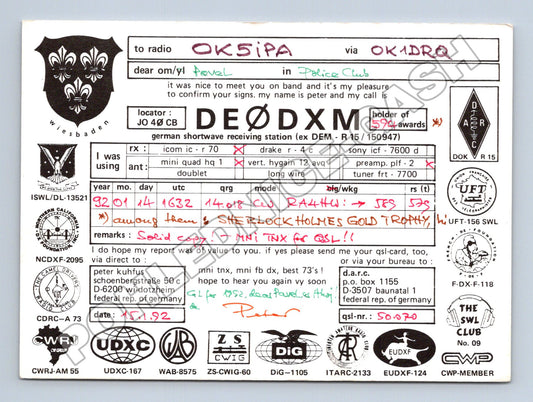 to radio OK5iPA via OK1DRQ
dear om/yl Pavel in Police Club
it was nice to meet you on band and it's my pleasure
to confirm your sigs. my name is peter and my call is
wiesbaden
locator :
JO 40 CB
DEØDXM
holder of
594 awards *)
DARC
DOK R 15
german shortwave receiving station (ex DEM - R 15 / 150947)
I was using
rx : icom ic - r 70 drake r - 4 c sony icf - 7600 d
ant : mini quad hq 1 vert. hygain 12 avq preamp. plf - 2
doublet long wire tuner frt - 7700
ISWL/DL-13521
year mo. day utc qrg mode dig/wkg rs (t)
92 01 14 1632 14.018 CW RA4HU: → 589 579
*) among them a SHERLOCK HOLMES GOLD TROPHY, hi
remarks : Solid copy, MNI TNX for QSL !!
UFT
UFT-156 SWL
NCDXF-2095
i do hope my report was of value to you. if yes please send me your qsl-card, too.
via direct to : or via your bureau to :
peter kuhfus
schoenbergstraße 50 c
D-6200 wiesbaden
federal rep. of germany
mni tnx, mni fb dx, best 73's !
hope to hear you again vy soon
d.a.r.c.
p.o. box 1155
D-3507 baunatal 1
federal rep. of germany
F-DX-F-118
CDRC-A 73
date : 15.1.92
Peter
qsl-nr.: 50.070
THE SWL CLUB
No. 09
CWRJ
UDXC
WAB
Z S
CWIG
DiG
EUDXF
CWP
CWRJ-AM 55 UDXC-167 WAB-8575 ZS-CWIG-60 DiG-1105 ITARC-2133 EUDXF-124 CWP-MEMBER